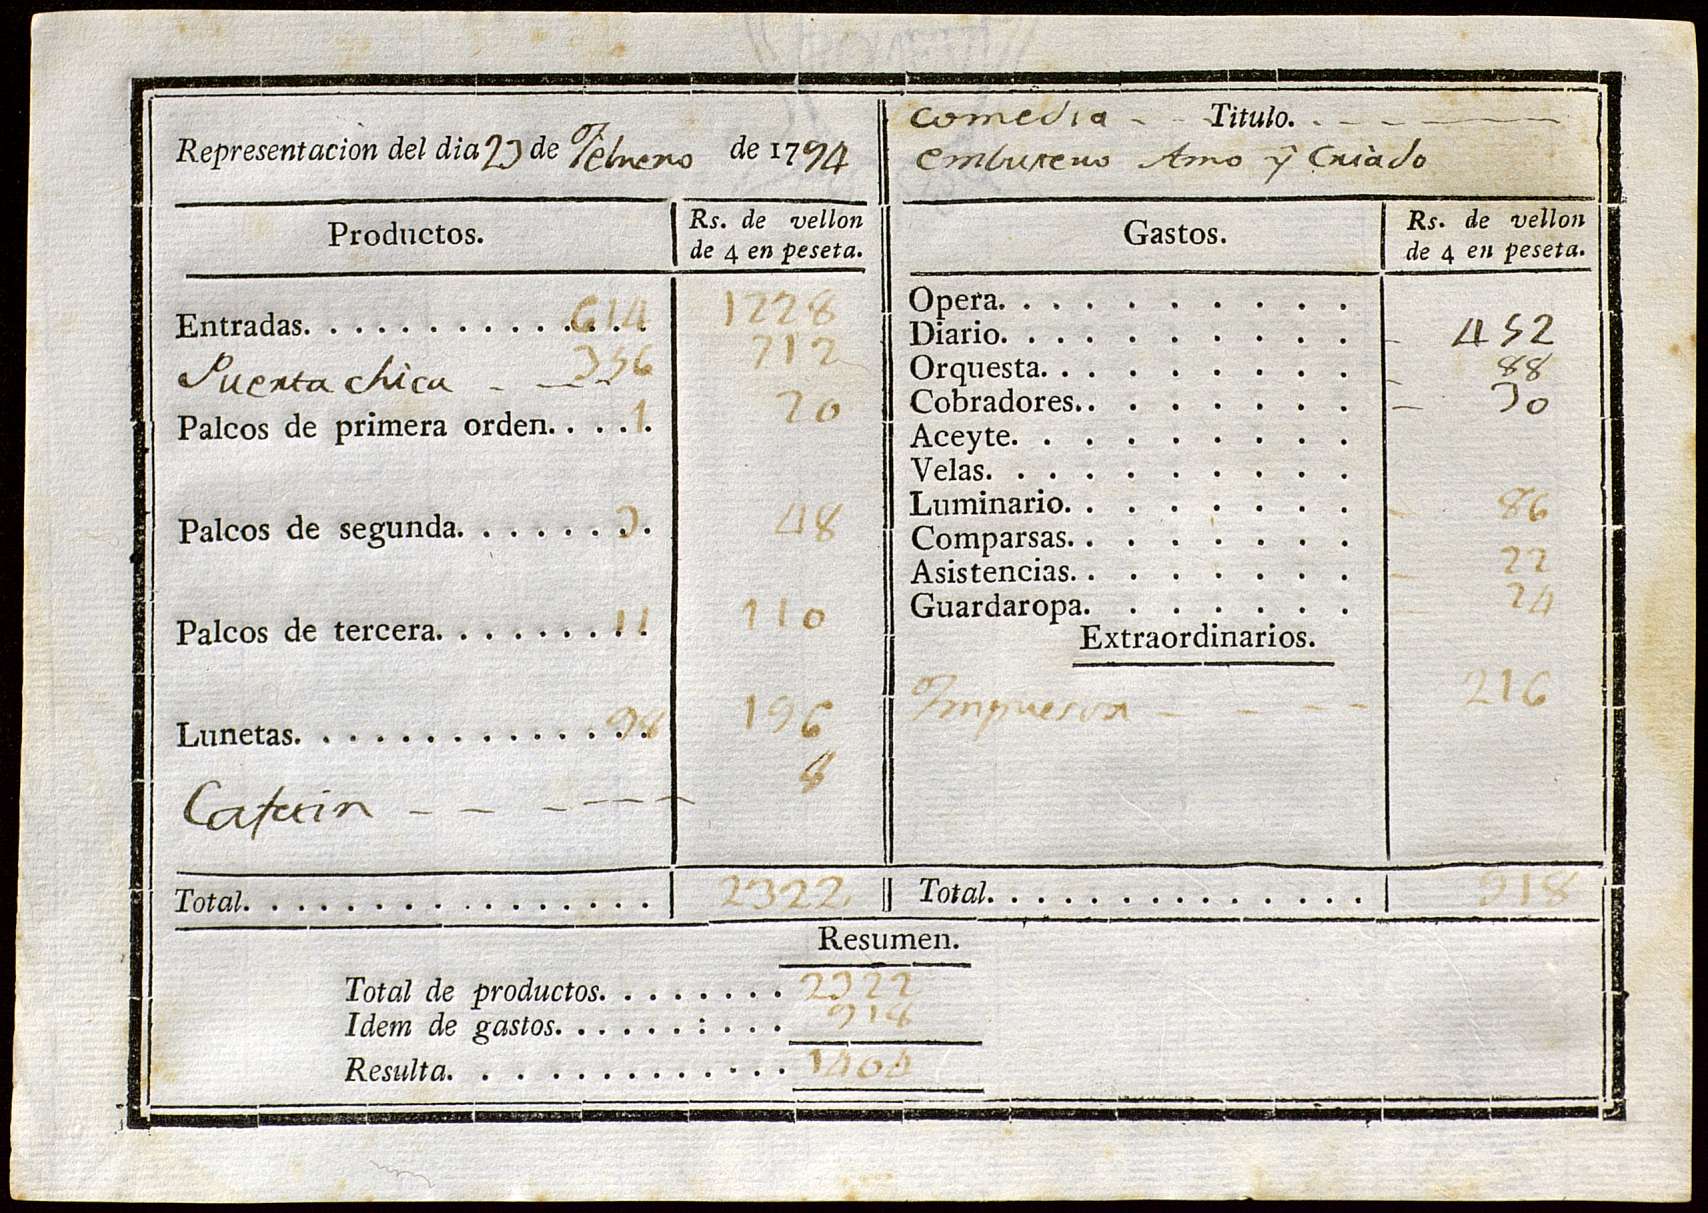 Representacion del dia 23 de Febrero de 1794
Productos.
Rs. de vellon
de 4 en peseta.
Entradas. . . . . . . . . . . . . . 614 1228
Puerta chica - - - - 356 712
Palcos de primera orden. . . . . 1 20
Palcos de segunda. . . . . . . . 3 48
Palcos de tercera. . . . . . . . . 11 110
Lunetas. . . . . . . . . . . . . . . 98 196
8
Total. . . . . . . . . . . . . . . . . 2322
comedia - - Titulo. . - - - - -
embustero Amo y Criado
Gastos.
Rs. de vellon
de 4 en peseta.
Opera. . . . . . . . . .
Diario. . . . . . . . . . - 452
Orquesta. . . . . . . . . - 88
Cobradores. . . . . . . . - 30
Aceyte. . . . . . . . .
Velas. . . . . . . . . .
Luminario. . . . . . . . - 86
Comparsas. . . . . . . .
Asistencias. . . . . . . . - 22
Guardaropa. . . . . . . 24
Extraordinarios.
- - - - - 216
Total. . . . . . . . . . . . . . . 918
Resumen.
Total de productos. . . . . . . . 2322
Idem de gastos. . . . . . : . . . 918
Resulta. . . . . . . . . . . . . 1404